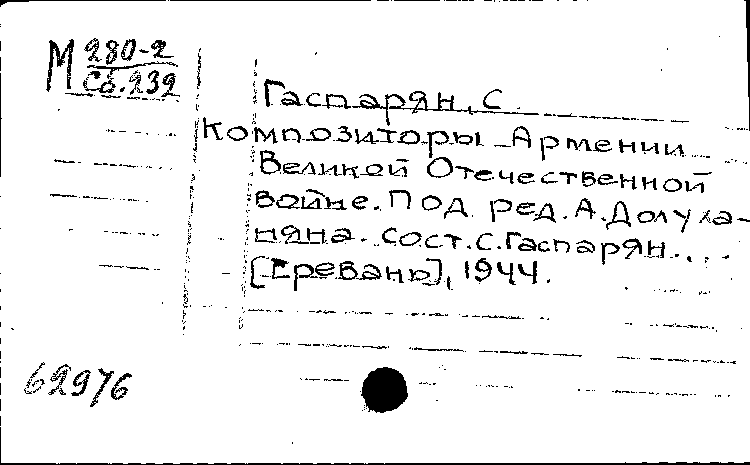 М 280-2
Сб.232
Гаспарян, С.
Композиторы Армении
Великой Отечественной
войне. Под ред. А. Долуха-
няна. сост. С. Гаспарян...
[Ереван], 1944.
62976